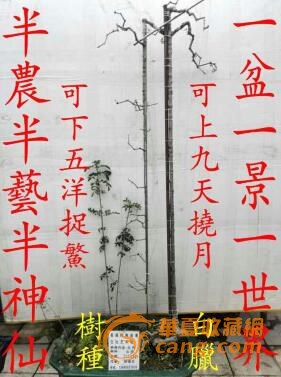 一盆一景一世界
可上九天撓月
可下五洋捉鱉
半農半藝半神仙
樹種
白臘
華夏收藏網
cang.com